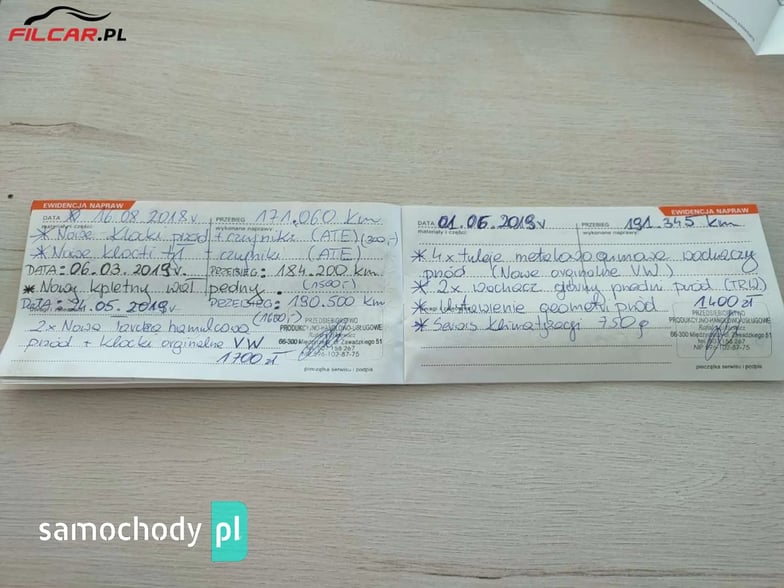 FILCAR.PL
EWIDENCJA NAPRAW
DATA 16.08.2018r PRZEBIEG 171.060 km
materiały i części wykonane naprawy
* Nowe klocki przód + czujniki (ATE) (300,-)
* Nowe klocki tył + czujniki (ATE)
DATA: 06.03.2019r. PRZEBIEG: 184.200 km
* Nowy kpletny wał pędny. (1500,-)
DATA: 05.2019r PRZEBIEG: 190.500 km
(1600,-)
2x Nowa tarcza hamulcowa
przód + klocki orginalne VW
1700 zł
PRZEDSIĘBIORSTWO
PRODUKCYJNO-HANDLOWO-USŁUGOWE
66-300 Zawadzkiego 51
pieczątka serwisu i podpis
EWIDENCJA NAPRAW
DATA 01.06.2019r PRZEBIEG 191.345 km
materiały i części wykonane naprawy
* 4x tuleje metalowo gumowe wachaczy
przód (Nowe orginalne VW)
* 2x wachacz główny przedni przód (TRW)
* Ustawienie geometri przód 1400 zł
* Serwis klimatyzacji 750g
PRZEDSIĘBIORSTWO
PRODUKCYJNO-HANDLOWO-USŁUGOWE
66-300 Zawadzkiego 51
pieczątka serwisu i podpis
samochody pl